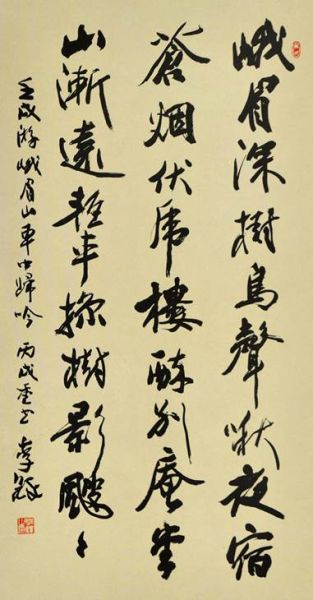 峨眉深樹鳥聲啾夜宿
蒼烟伏虎樓醉別庵堂
山漸遠輕車掠樹影颼〻
壬戌游峨眉山車中歸吟 丙戌重书 李鐸